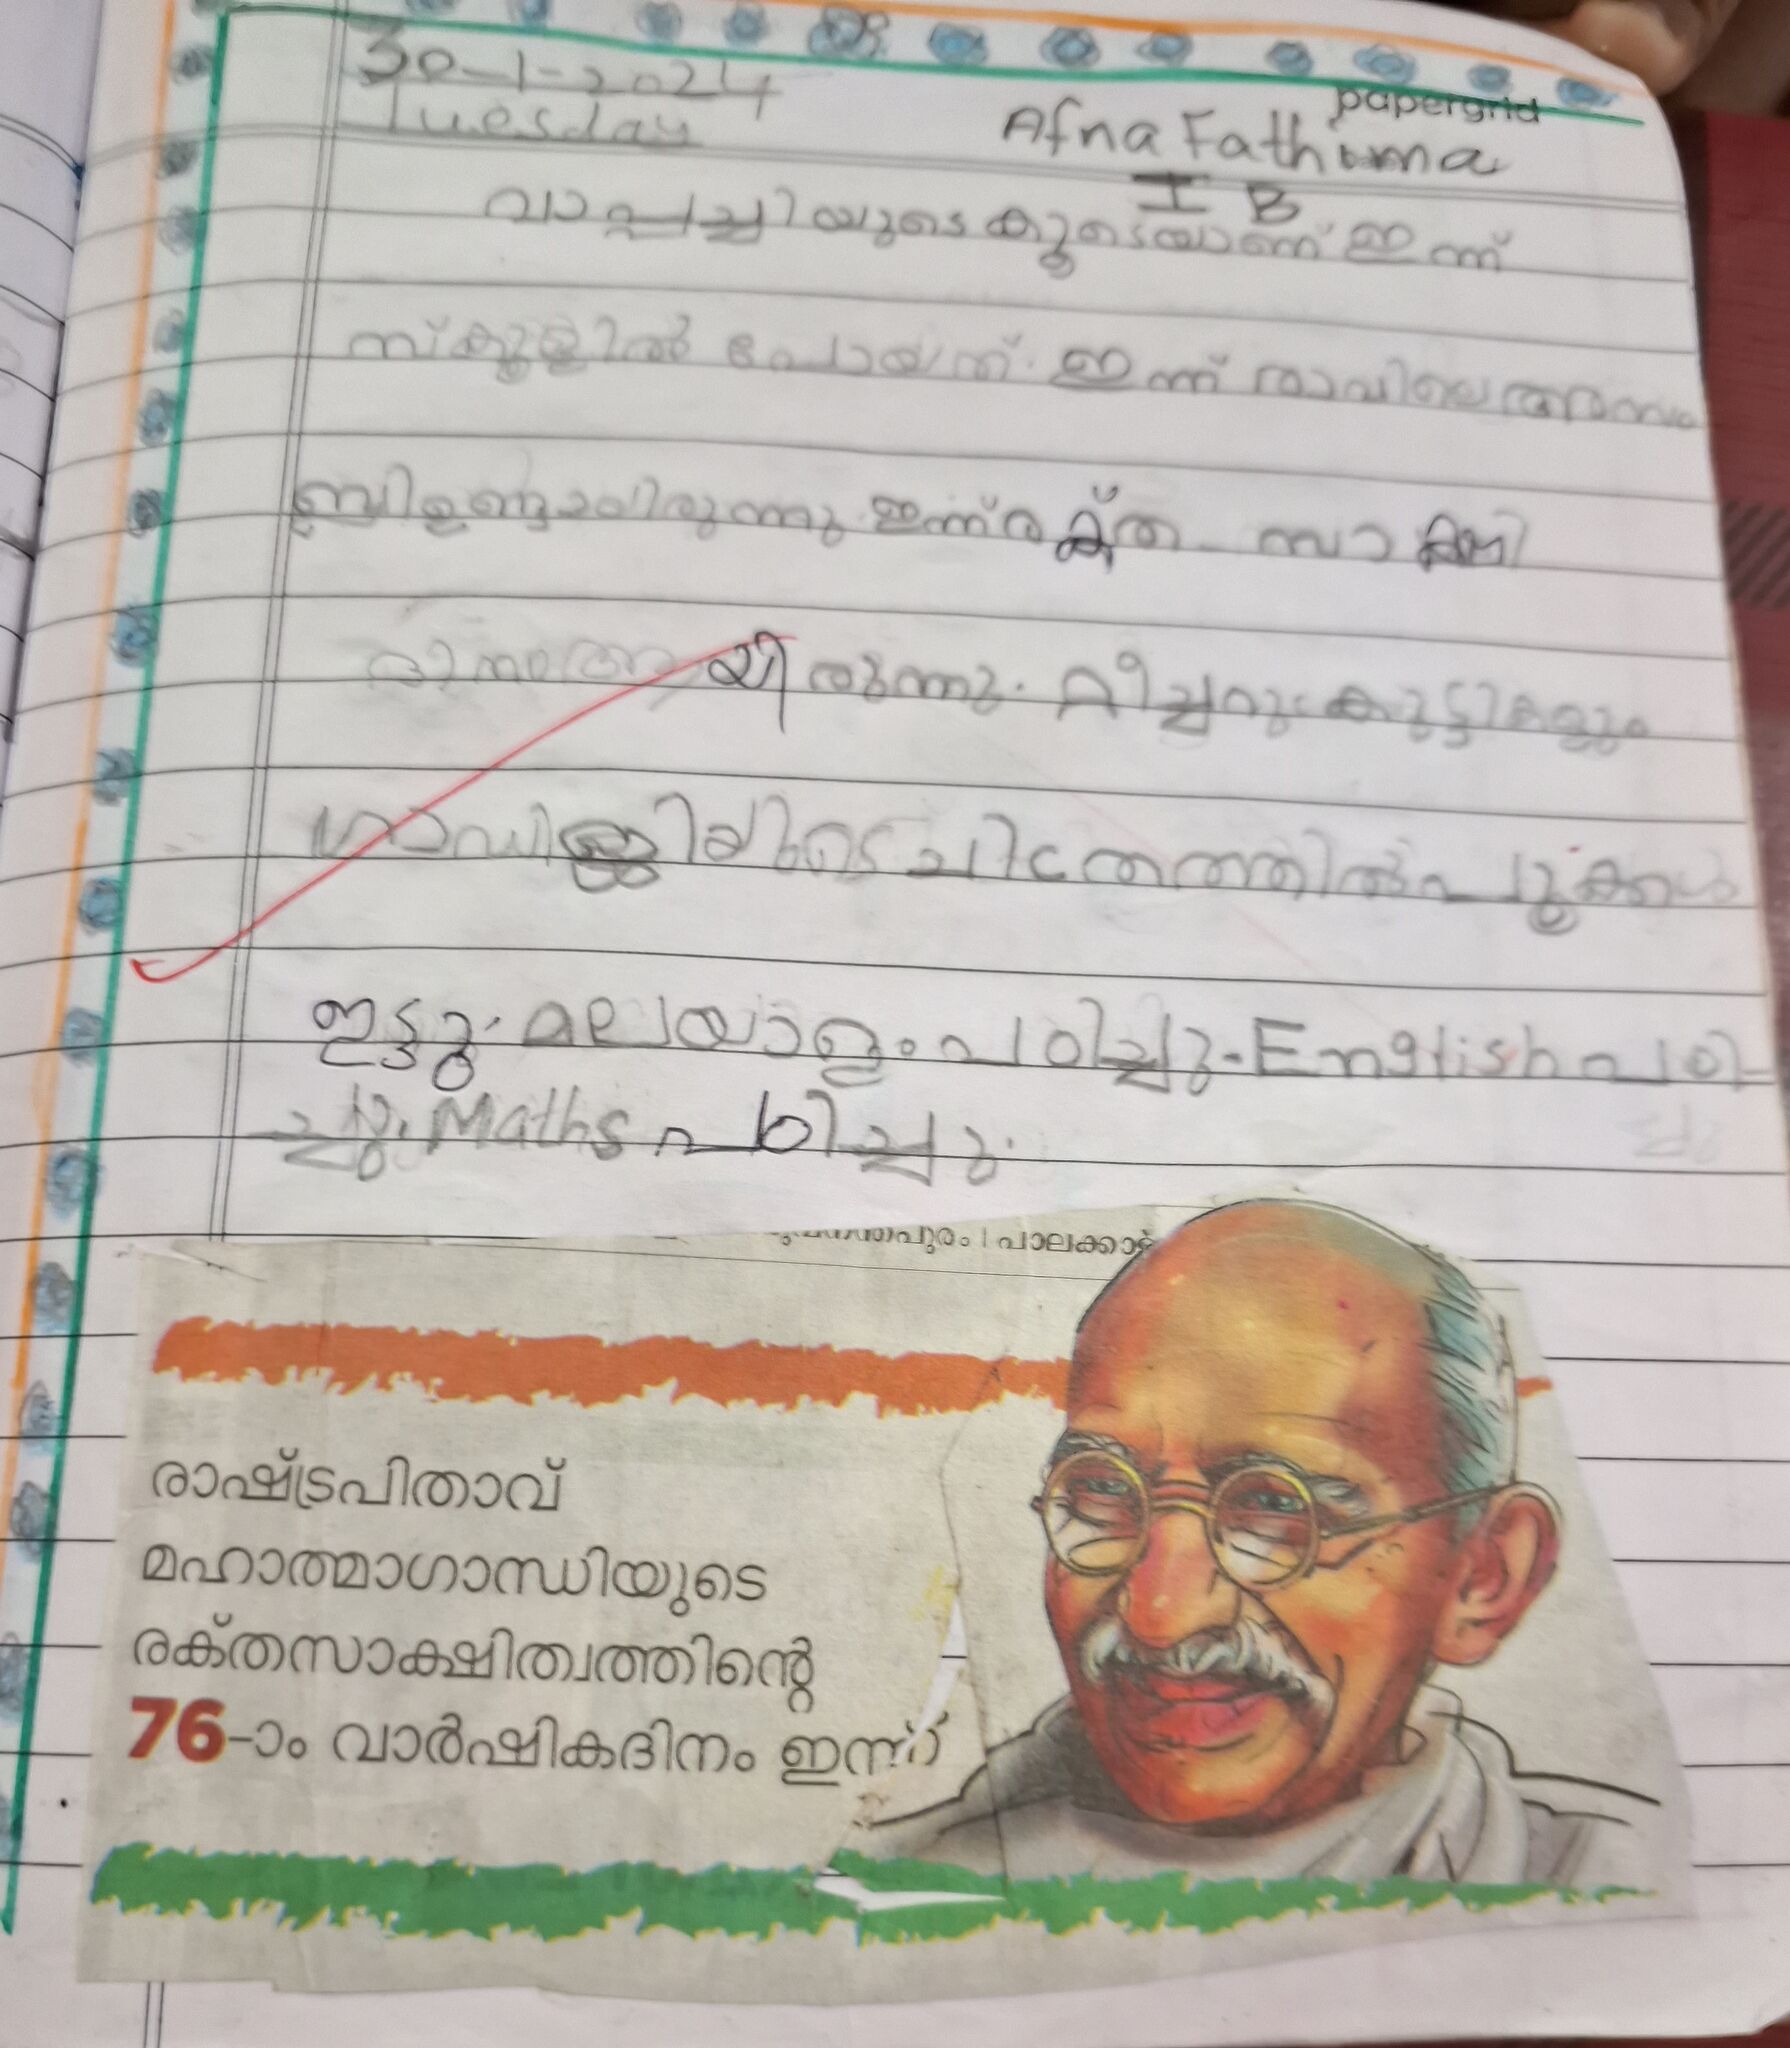 30-1-2024
Tuesday
papergrid
Afna Fathima
I B
വാപ്പച്ചിയുടെ കൂടെയാണ് ഇന്ന്
സ്കൂളിൽ പോയത്. ഇന്ന് രാവിലെ അസം
ബ്ലി ഉണ്ടായിരുന്നു. ഇന്ന് രക്ത സാക്ഷി
ദിനമായിരുന്നു. ടീച്ചറും കുട്ടികളും
ചിത്രത്തിൽ പൂക്കൾ
ഇട്ടു. മലയാളം പഠിച്ചു. English പഠി-
ച്ചു. Maths പഠിച്ചു.
പാലക്കാട്
രാഷ്ട്രപിതാവ്
മഹാത്മാഗാന്ധിയുടെ
രക്തസാക്ഷിത്വത്തിന്റെ
76-ാം വാർഷികദിനം ഇന്ന്